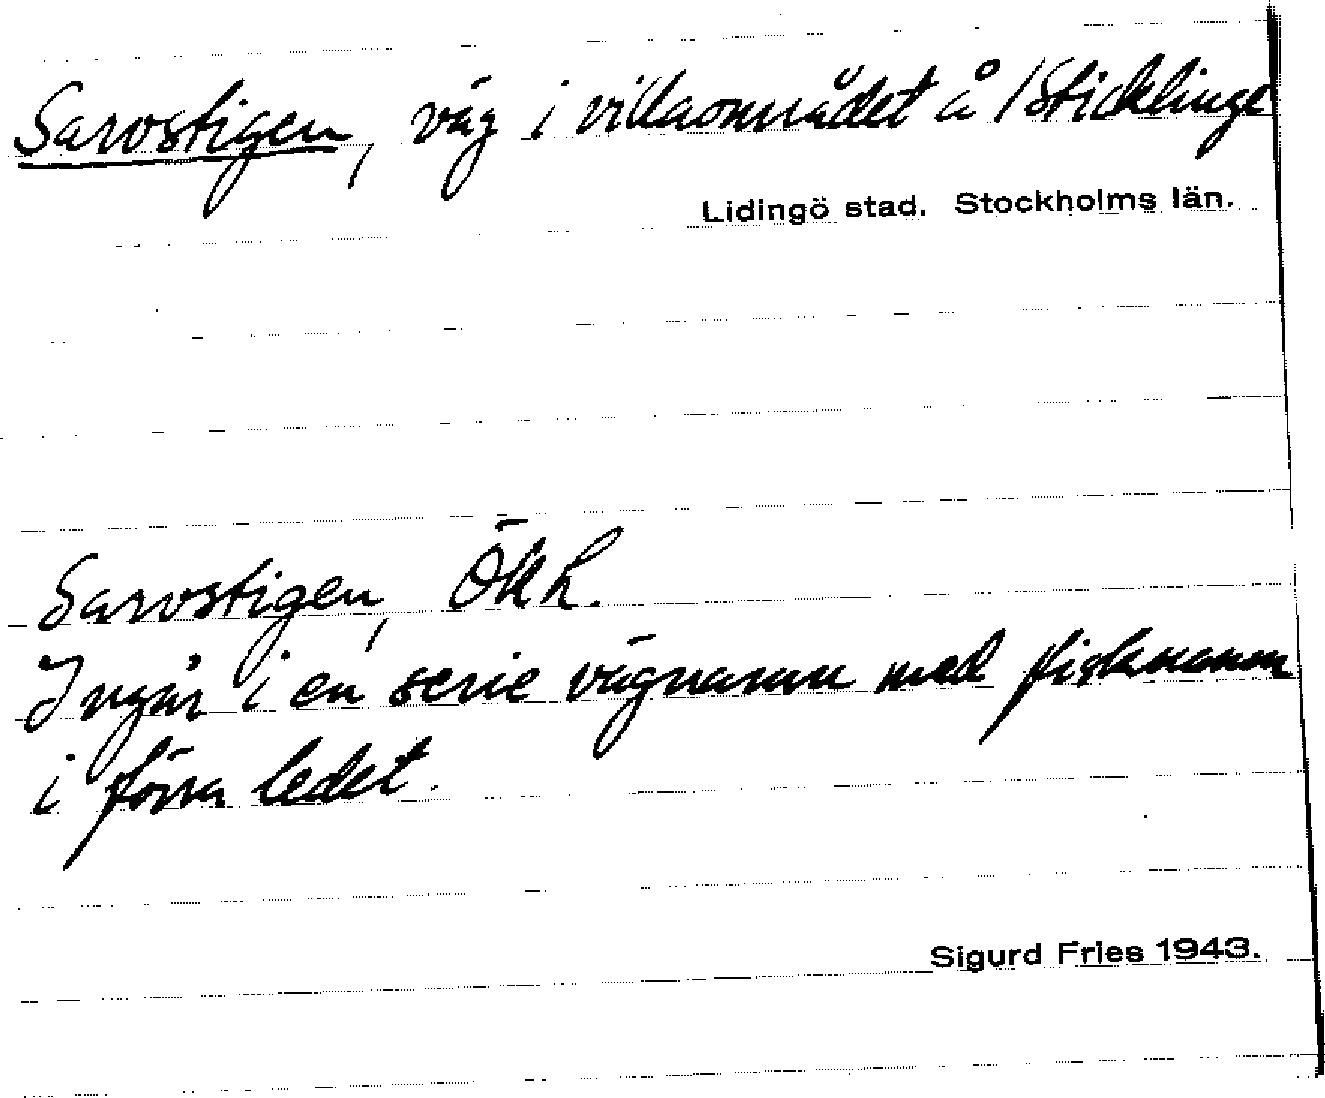 Sarvstigen, väg i villaområdet å /Sticklinge
Lidingö stad. Stockholms län.
Sarvstigen, ÖKL.
Ingår i en serie vägnamn med fisknamn
i förra ledet.
Sigurd Fries 1943.